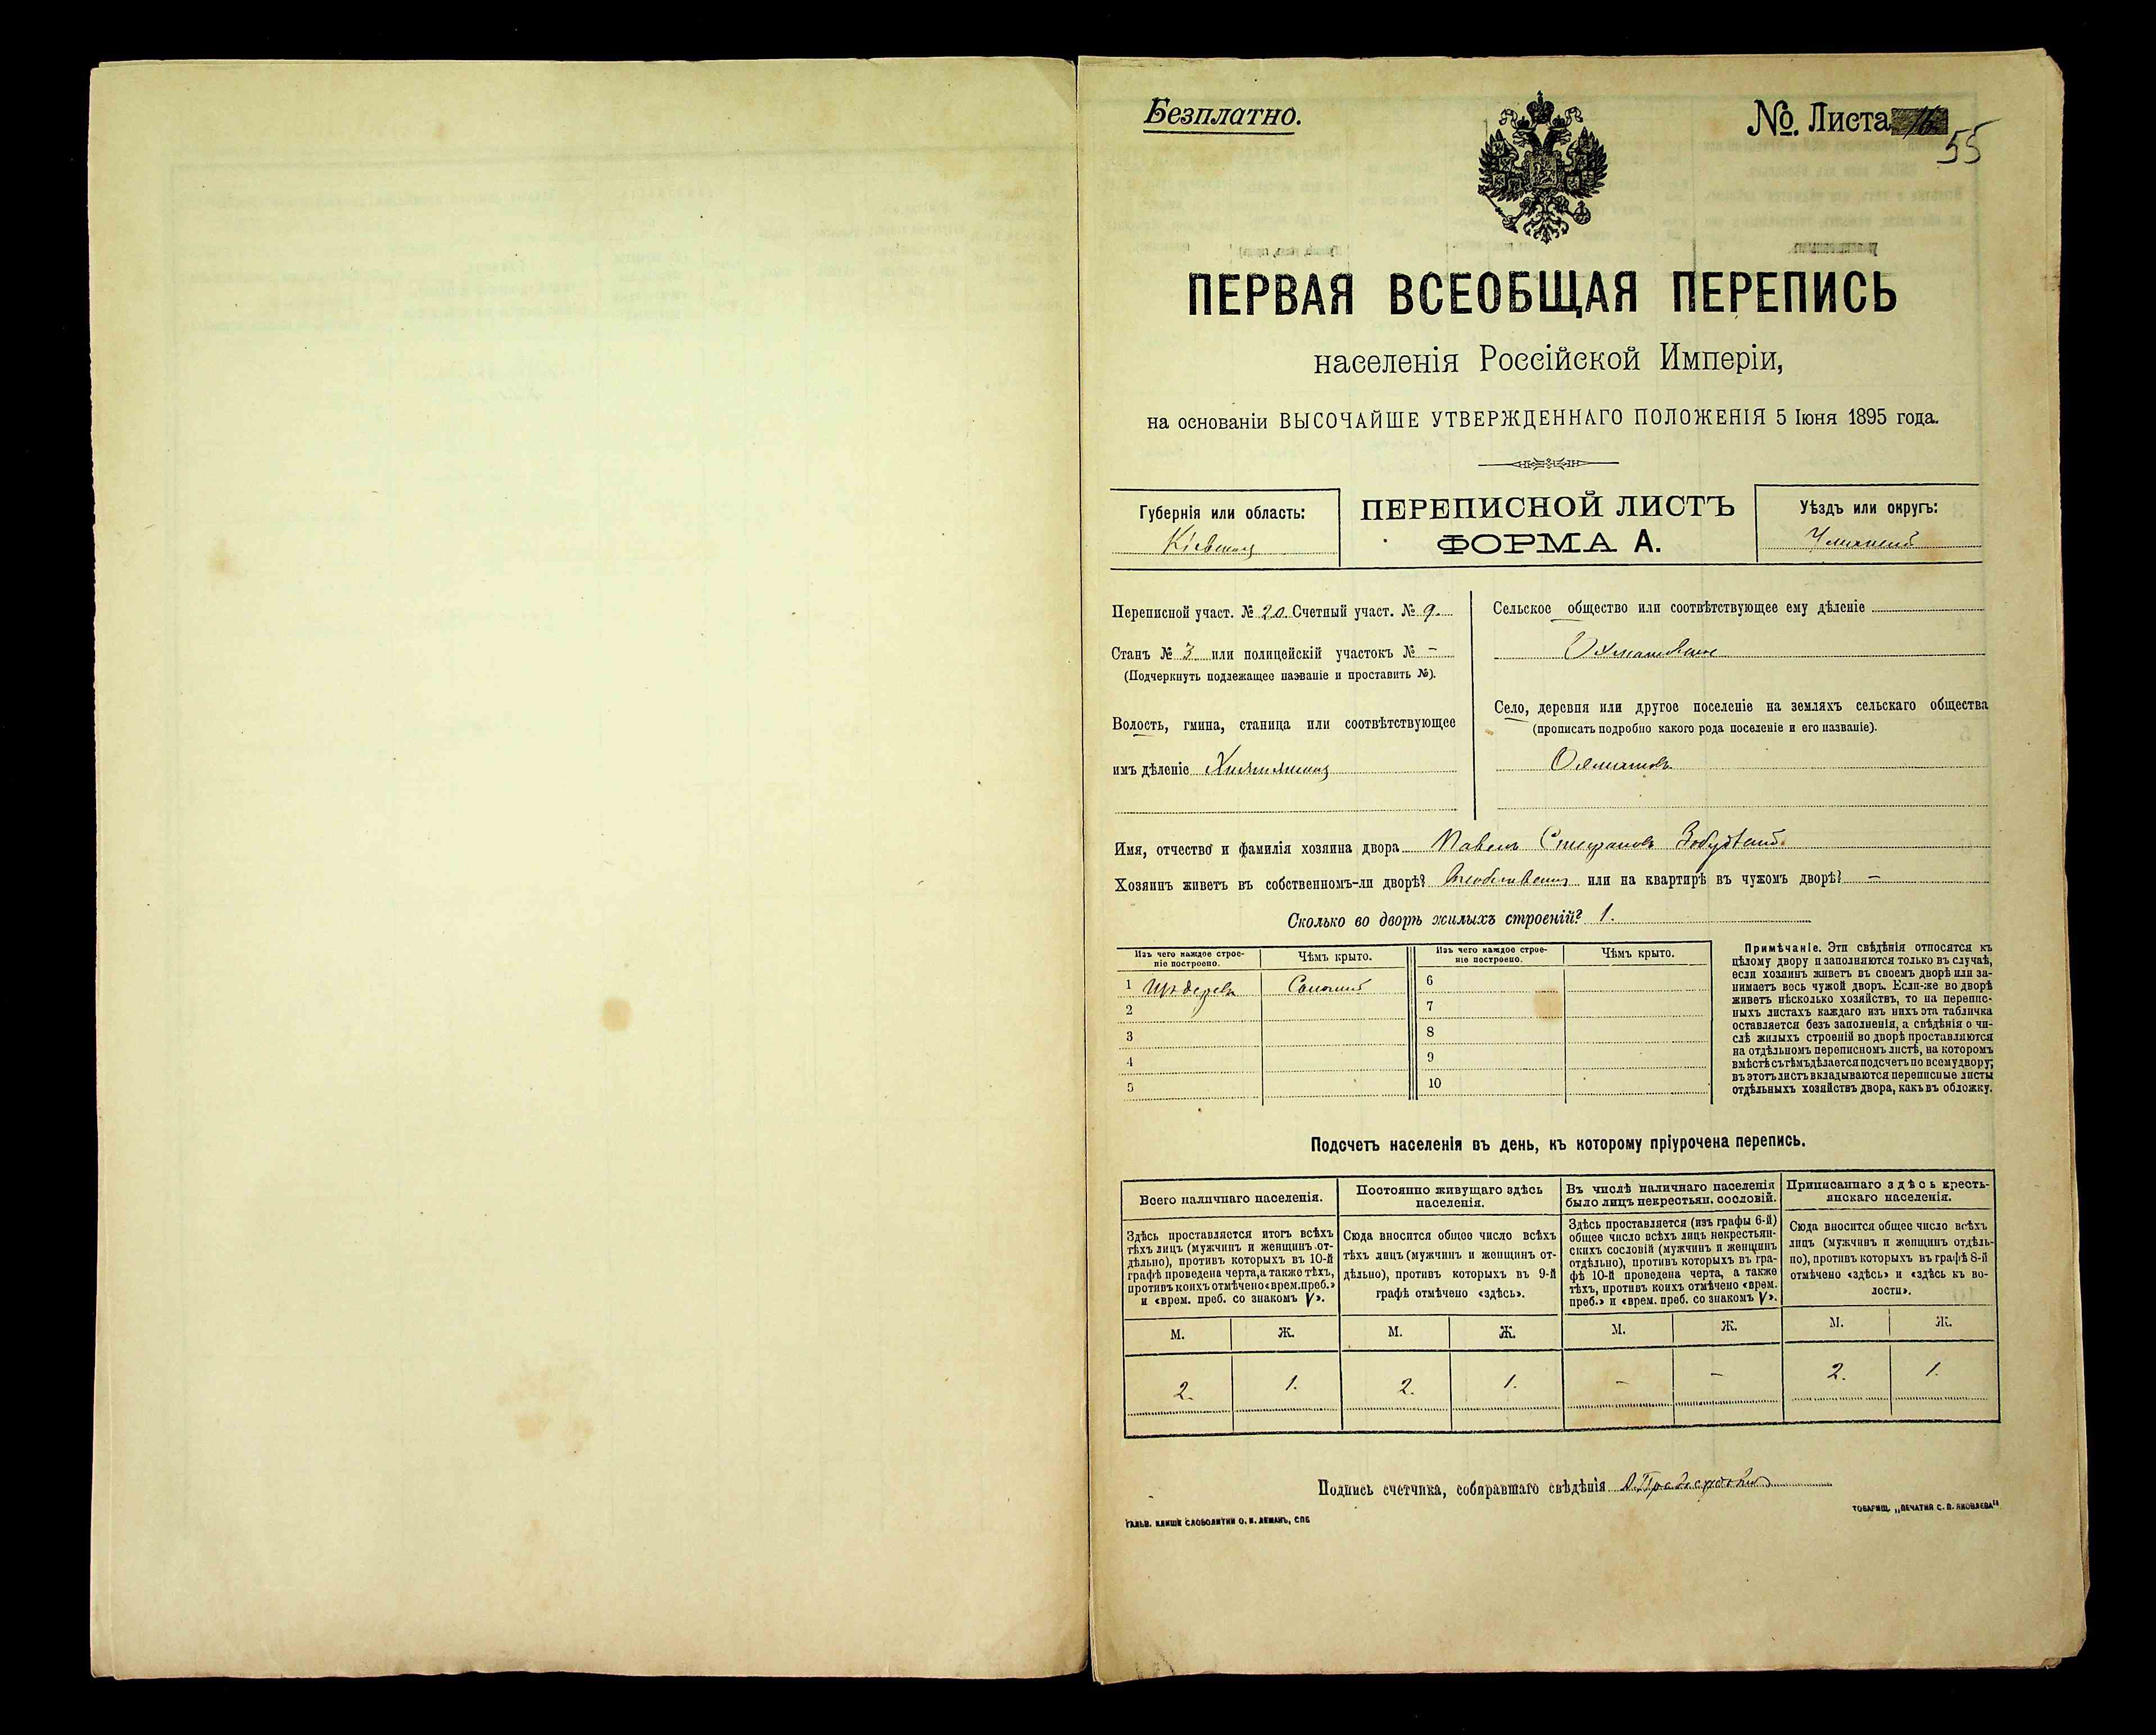 Безплатно.
№. Листа 55
ПЕРВАЯ ВСЕОБЩАЯ ПЕРЕПИСЬ
населенія Россійской Имперіи,
на основаніи ВЫСОЧАЙШЕ УТВЕРЖДЕННАГО ПОЛОЖЕНІЯ 5 Іюня 1895 года.
Губернія или область:
Кіевская
ПЕРЕПИСНОЙ ЛИСТЪ
ФОРМА А.
Уѣздъ или округъ:
Уманский
Переписной участ. № 20. Счетный участ. № 9.
Станъ № 3 или полицейскій участокъ № –
(Подчеркнуть подлежащее названіе и проставить №).
Волость, гмина, станица или соотвѣтствующее
имъ дѣленіе
Сельское общество или соотвѣтствующее ему дѣленіе
Село, деревня или другое поселеніе на земляхъ сельскаго общества
(прописать подробно какого рода поселеніе и его названіе).
Охматовъ
Имя, отчество и фамилія хозяина двора Павелъ Степановъ
Хозяинъ живетъ въ собственномъ-ли дворѣ? или на квартирѣ въ чужомъ дворѣ? –
Сколько во дворѣ жилыхъ строеній? 1.
Изъ чего каждое строе-
ніе построено.
Чѣмъ крыто.
Изъ чего каждое строе-
ніе построено.
Чѣмъ крыто.
1 Изъ дерева
Соломой
6
2
7
3
8
4
9
5
10
Примѣчаніе. Эти свѣдѣнія относятся къ
цѣлому двору и заполняются только въ случаѣ,
если хозяинъ живетъ въ своемъ дворѣ или за-
нимаетъ весь чужой дворъ. Если-же во дворѣ
живетъ нѣсколько хозяйствъ, то на перепис-
ныхъ листахъ каждаго изъ нихъ эта табличка
оставляется безъ заполненія, а свѣдѣнія о чи-
слѣ жилыхъ строеній во дворѣ проставляются
на отдѣльномъ переписномъ листѣ, на которомъ
вмѣстѣ съ тѣмъ дѣлается подсчетъ по всему двору;
въ этотъ листъ вкладываются переписные листы
отдѣльныхъ хозяйствъ двора, какъ въ обложку.
Подсчетъ населенія въ день, къ которому пріурочена перепись.
Всего наличнаго населенія.
Здѣсь проставляется итогъ всѣхъ
тѣхъ лицъ (мужчинъ и женщинъ от-
дѣльно), противъ которыхъ въ 10-й
графѣ проведена черта, а также тѣхъ,
противъ коихъ отмѣчено «врем. преб.»
и «врем. преб. со знакомъ V».
Постоянно живущаго здѣсь
населенія.
Сюда вносится общее число всѣхъ
тѣхъ лицъ (мужчинъ и женщинъ от-
дѣльно), противъ которыхъ въ 9-й
графѣ отмѣчено «здѣсь».
Въ числѣ наличнаго населенія
было лицъ некрестьян. сословій.
Здѣсь проставляется (изъ графы 6-й)
общее число всѣхъ лицъ некрестьян-
скихъ сословій (мужчинъ и женщинъ
отдѣльно), противъ которыхъ въ гра-
фѣ 10-й проведена черта, а также
тѣхъ, противъ коихъ отмѣчено «врем.
преб.» и «врем. преб. со знакомъ V».
Приписаннаго здѣсь кресть-
янскаго населенія.
Сюда вносится общее число всѣхъ
лицъ (мужчинъ и женщинъ отдѣль-
но), противъ которыхъ въ графѣ 8-й
отмѣчено «здѣсь» и «здѣсь къ во-
лости».
М. Ж. М. Ж. М. Ж. М. Ж.
2. 1. 2. 1. – – 2. 1.
Подпись счетчика, собиравшаго свѣдѣнія
ГАЛЬВ. КЛИШЕ СЛОВОЛИТНИ О. И. ЛЕМАНЪ, СПБ
ТОВАРИЩ. „ПЕЧАТНЯ С. П. ЯКОВЛЕВА"